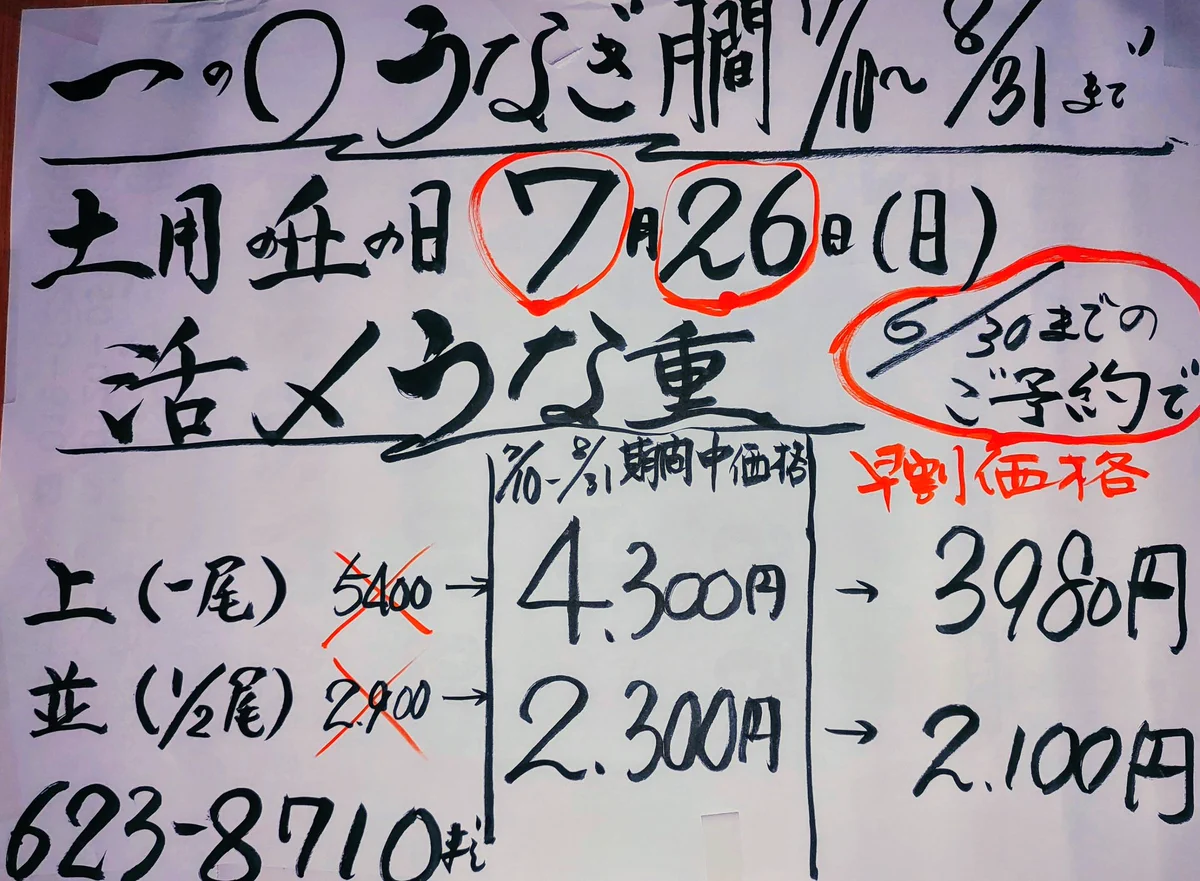 一の〇 うなぎ 7/10〜8/31まで
土用の丑の日 7月26日(日)
活〆うな重
6/30までの
ご予約で
7/10-8/31 期間中価格
早割価格
上(一尾) 5400 → 4.300円 → 3980円
並(1/2尾) 2.900 → 2.300円 → 2.100円
623-8710まで